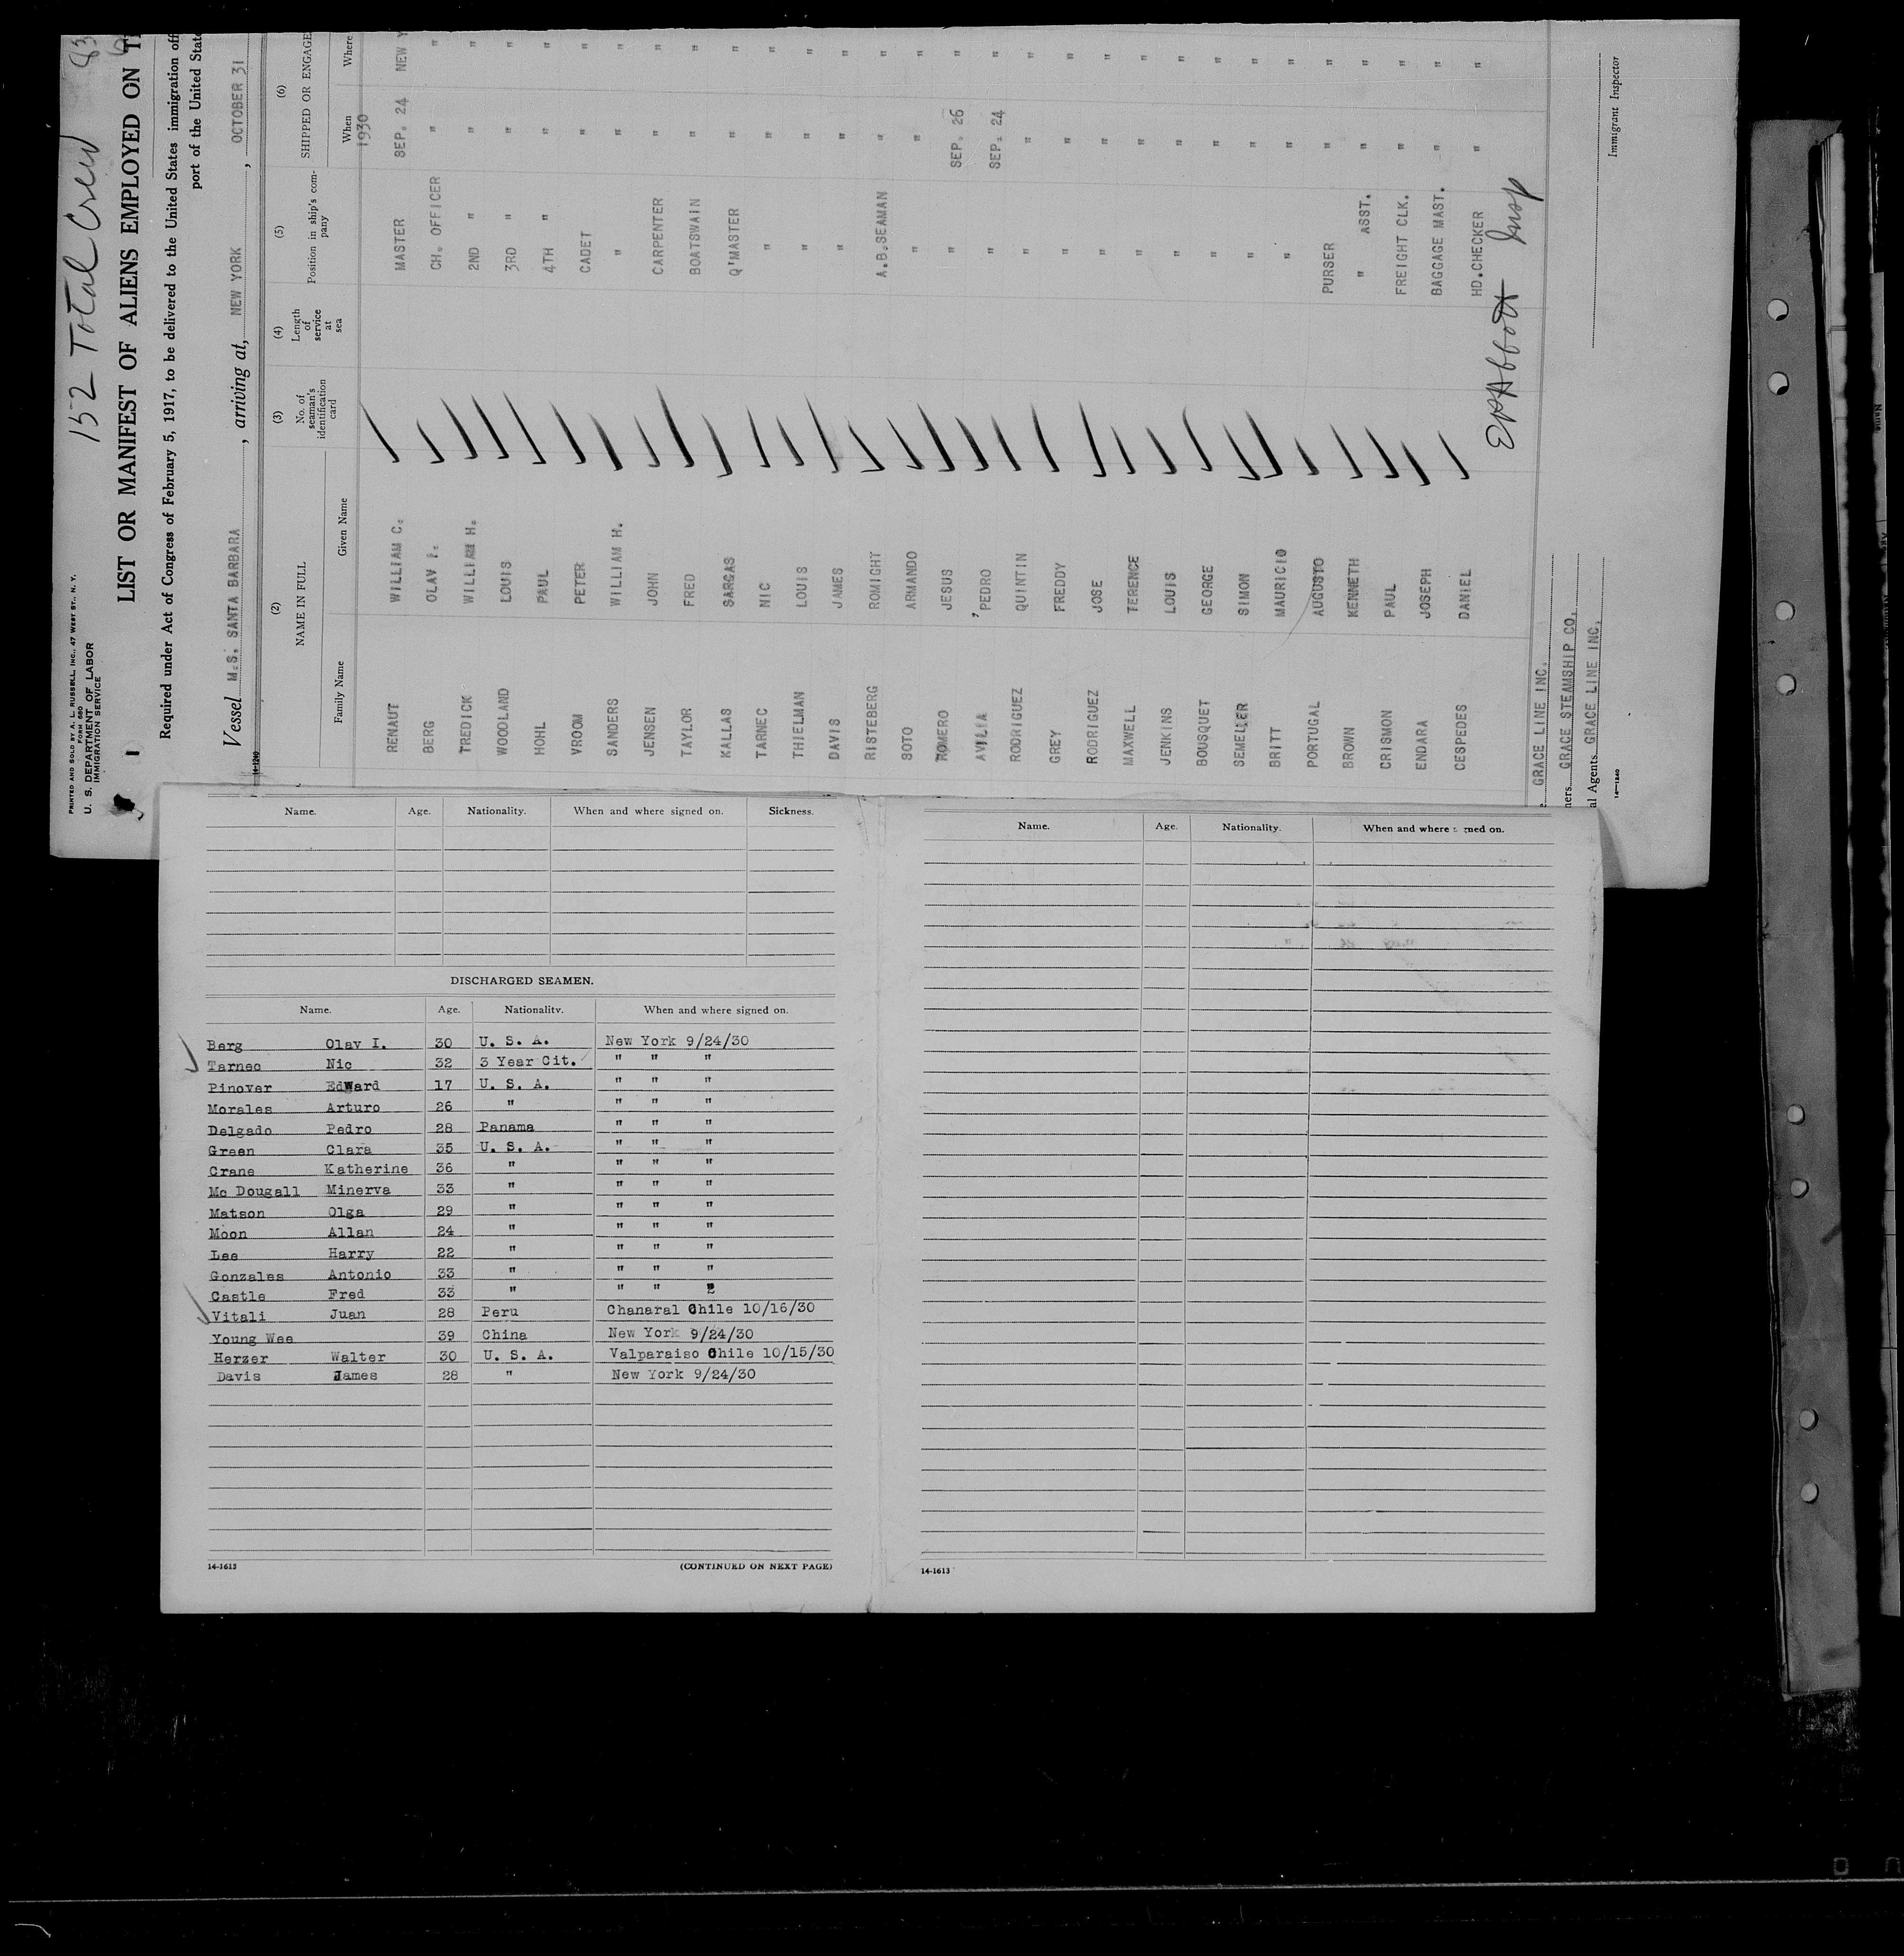 152 Total Crew
PRINTED AND SOLD BY A. L. RUSSELL, INC., 47 WEST ST., N. Y.
FORM 680
U. S. DEPARTMENT OF LABOR
IMMIGRATION SERVICE
1
LIST OR MANIFEST OF ALIENS EMPLOYED ON
Required under Act of Congress of February 5, 1917, to be delivered to the United States immigration
port of the United
Vessel M.S. SANTA BARBARA, arriving at, NEW YORK, OCTOBER 31
14-1240
(2) (3) (4) (5) (6)
NAME IN FULL No. of seaman's identification card Length of service at sea Position in ship's company SHIPPED OR ENGAGE
Family Name Given Name When Where
1930
RENAUT WILLIAM C. MASTER SEP. 24 NEW Y
BERG OLAV I. CH. OFFICER " "
TREDICK WILLIAM H. 2ND " " "
WOODLAND LOUIS 3RD " " "
HOHL PAUL 4TH " " "
VROOM PETER CADET " "
SANDERS WILLIAM H. " " "
JENSEN JOHN CARPENTER " "
TAYLOR FRED BOATSWAIN " "
KALLAS SARGAS Q'MASTER " "
TARNEC NIC " " "
THIELMAN LOUIS " " "
DAVIS JAMES " " "
RISTEBERG ROMIGHT A.B.SEAMAN " "
SOTO ARMANDO " " "
ROMERO JESUS " SEP. 26 "
AVILIA PEDRO " SEP. 24 "
RODRIGUEZ QUINTIN " " "
GREY FREDDY " " "
RODRIGUEZ JOSE " " "
MAXWELL TERENCE " " "
JENKINS LOUIS " " "
BOUSQUET GEORGE " " "
SEMELLER SIMON " " "
BRITT MAURICIO " " "
PORTUGAL AUGUSTO PURSER " "
BROWN KENNETH " ASST. " "
CRISMON PAUL FREIGHT CLK. " "
ENDARA JOSEPH BAGGAGE MAST. " "
CESPEDES DANIEL HD.CHECKER " "
Abbott Insp
GRACE LINE INC.
ners GRACE STEAMSHIP CO.
al Agents GRACE LINE INC.
Immigrant Inspector
14-1240
Name. Age. Nationality. When and where signed on. Sickness.
DISCHARGED SEAMEN.
Name. Age. Nationality. When and where signed on.
Berg Olav I. 30 U. S. A. New York 9/24/30
Tarnec Nic 32 3 Year Cit. " " "
Pinover Edward 17 U. S. A. " " "
Morales Arturo 26 " " " "
Delgado Pedro 28 Panama " " "
Green Clara 35 U. S. A. " " "
Crane Katherine 36 " " " "
Mc Dougall Minerva 33 " " " "
Matson Olga 29 " " " "
Moon Allan 24 " " " "
Lee Harry 22 " " " "
Gonzales Antonio 33 " " " "
Castle Fred 33 " " " "
Vitali Juan 28 Peru Chanaral Chile 10/16/30
Young Wee 39 China New York 9/24/30
Herzer Walter 30 U. S. A. Valparaiso Chile 10/15/30
Davis James 28 " New York 9/24/30
14-1613 (CONTINUED ON NEXT PAGE)
Name. Age. Nationality. When and where signed on.
14-1613